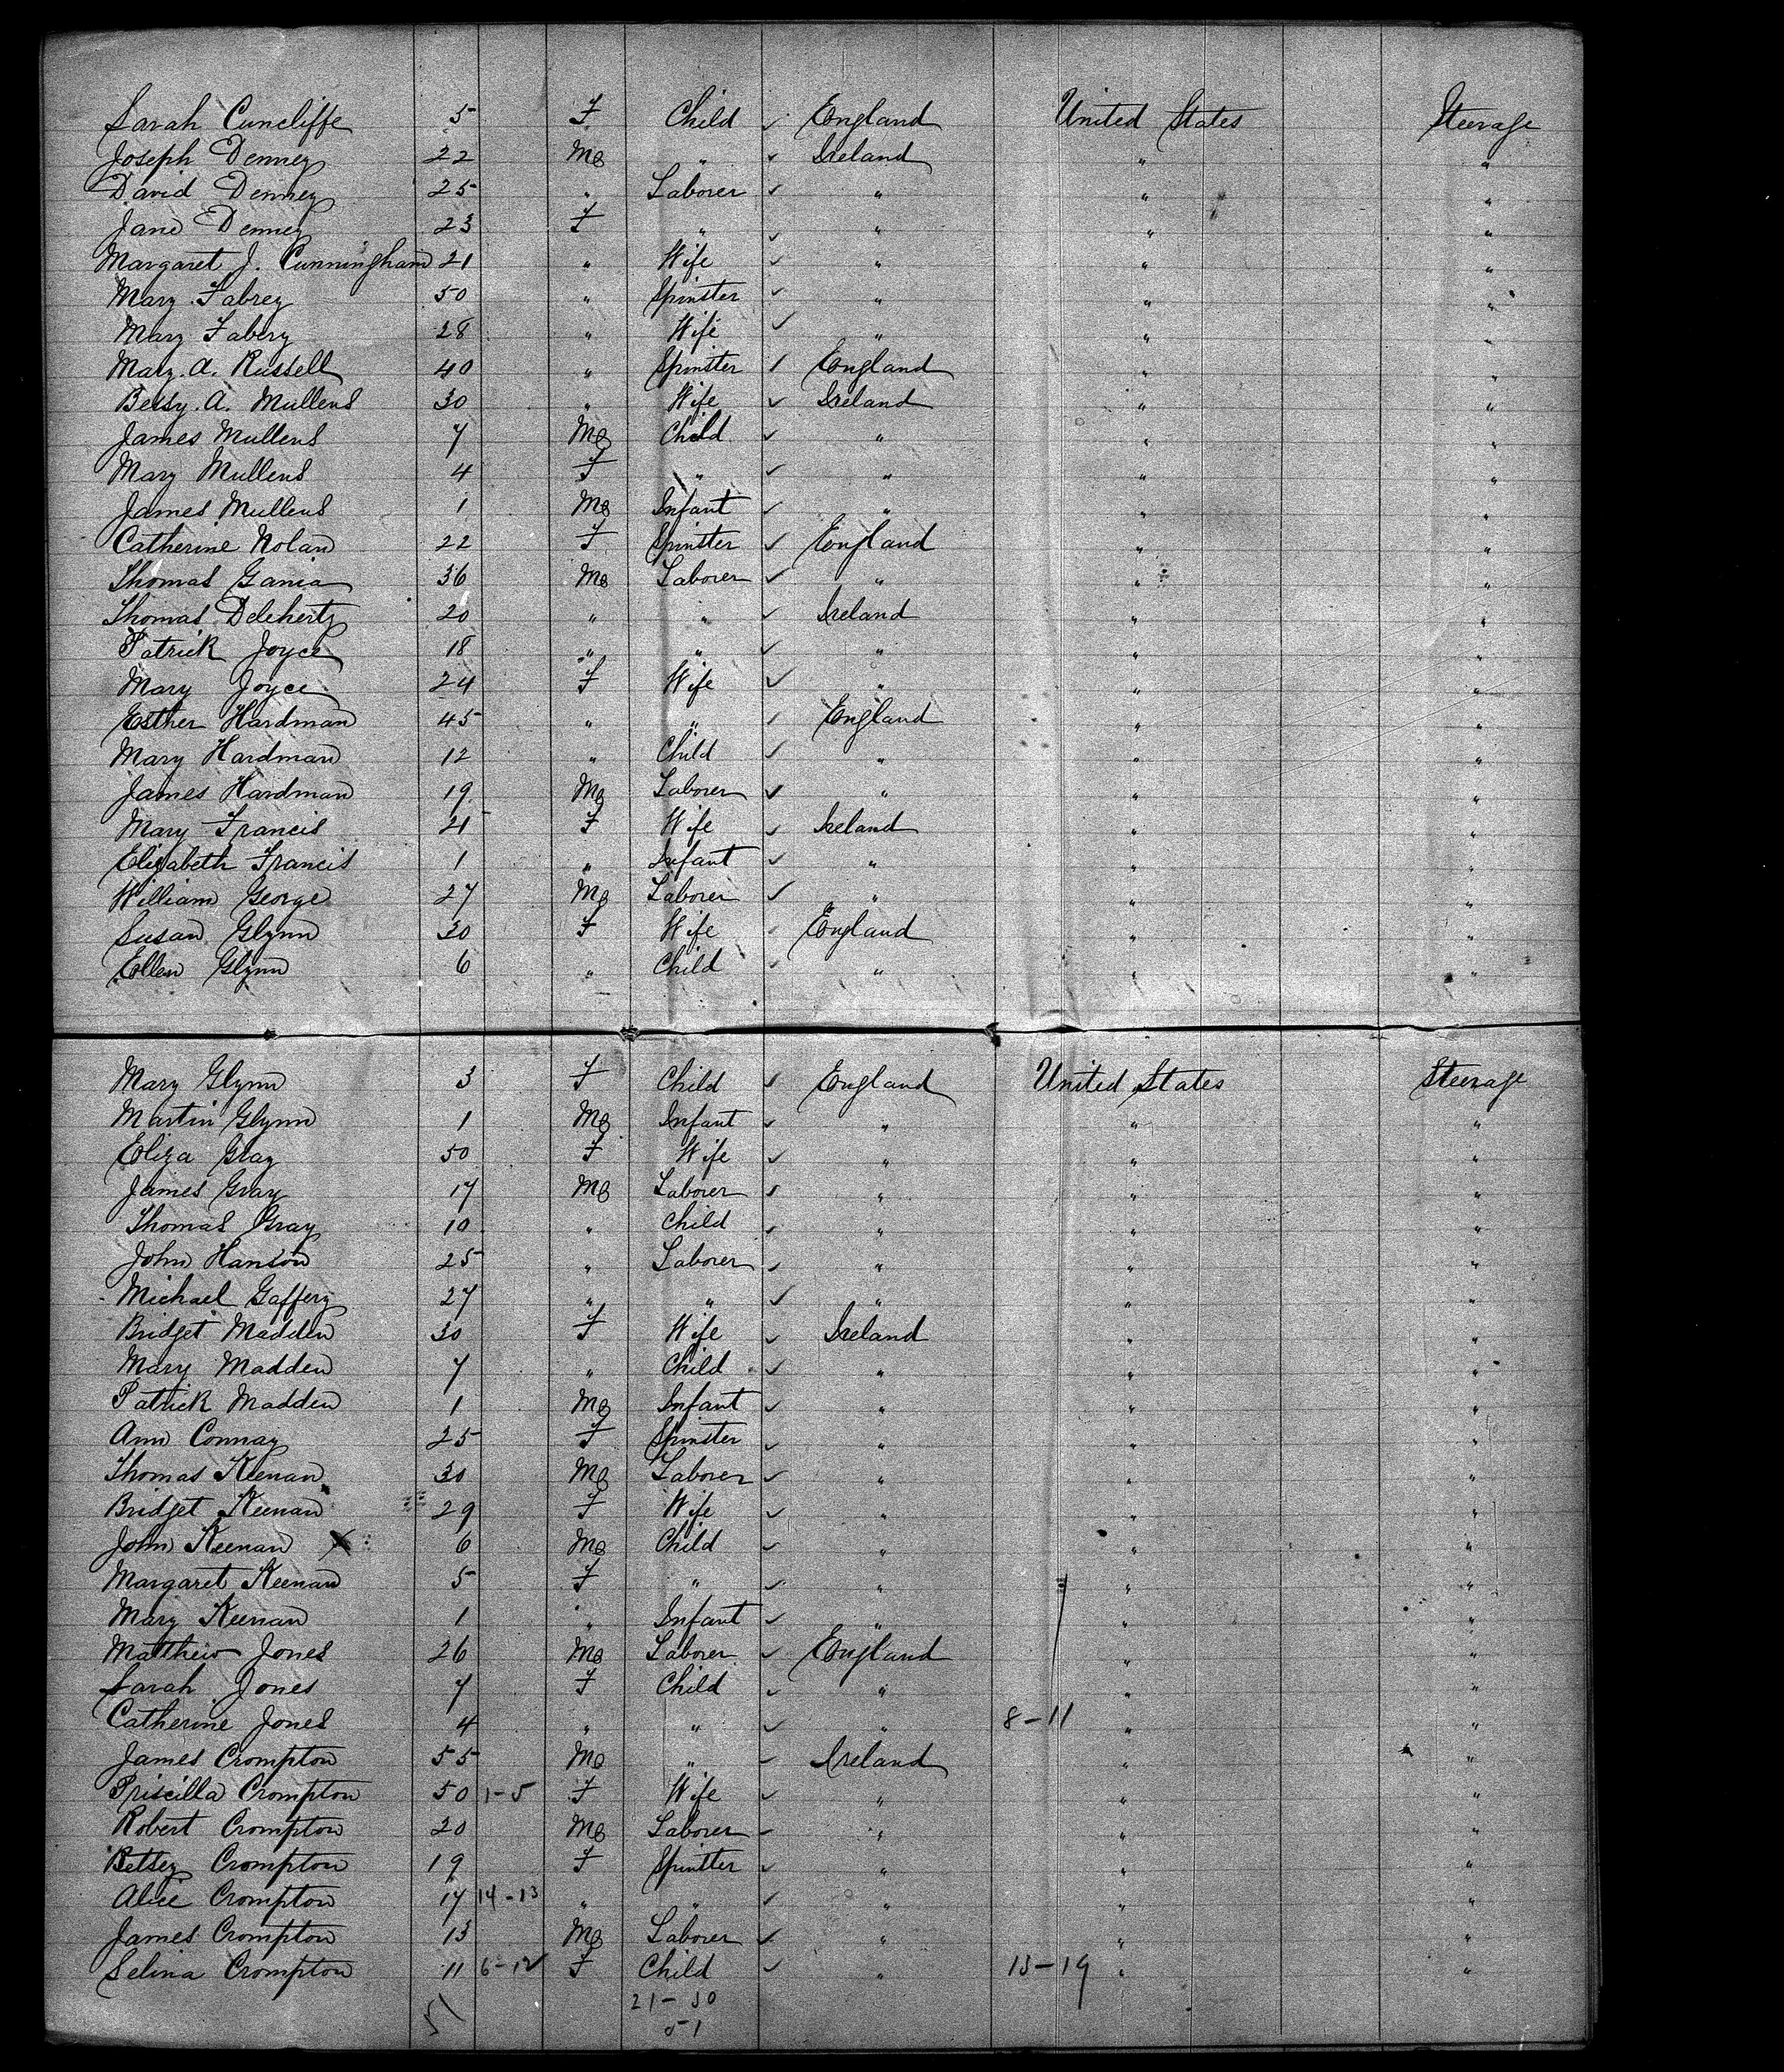 Sarah Cuncliffe 5 F Child ✓ England United States Steerage
Joseph Denney 22 M " ✓ Ireland " "
David Denney 25 " Laborer ✓ " " "
Jane Denney 23 F " ✓ " " "
Margaret J. Cunningham 21 " Wife ✓ " " "
Mary Fabrey 50 " Spinster ✓ " " "
Mary Fabery 28 " Wife ✓ " " "
Mary. A. Russell 40 " Spinster ✓ England " "
Betsy. A. Mullens 30 " Wife ✓ Ireland " "
James Mullens 7 M Child ✓ " " "
Mary Mullens 4 F " ✓ " " "
James Mullens 1 M Infant ✓ " " "
Catherine Nolan 22 F Spinster ✓ England " "
Thomas Gania 36 M Laborer ✓ " " "
Thomas Deleherty 20 " " ✓ Ireland " "
Patrick Joyce 18 " " ✓ " " "
Mary Joyce 24 F Wife ✓ " " "
Esther Hardman 45 " " ✓ England " "
Mary Hardman 12 " Child ✓ " " "
James Hardman 19 M Laborer ✓ " " "
Mary Francis 21 F Wife ✓ Ireland " "
Elizabeth Francis 1 " Infant ✓ " " "
William George 27 M Laborer ✓ " " "
Susan Glynn 30 F Wife ✓ England " "
Ellen Glynn 6 " Child ✓ " " "
Mary Glynn 3 F Child ✓ England United States Steerage
Martin Glynn 1 M Infant ✓ " " "
Eliza Gray 50 F Wife ✓ " " "
James Gray 17 M Laborer ✓ " " "
Thomas Gray 10 " Child ✓ " " "
John Hanson 25 " Laborer ✓ " " "
Michael Gaffery 27 " " ✓ " " "
Bridget Madden 30 F Wife ✓ Ireland " "
Mary Madden 7 " Child ✓ " " "
Patrick Madden 1 M Infant ✓ " " "
Ann Connay 25 F Spinster ✓ " " "
Thomas Keenan 30 M Laborer ✓ " " "
Bridget Keenan 29 F Wife ✓ " " "
John Keenan X 6 M Child ✓ " " "
Margaret Keenan 5 F " ✓ " " "
Mary Keenan 1 " Infant ✓ " " "
Matthew Jones 26 M Laborer ✓ England " "
Sarah Jones 7 F Child ✓ " " "
Catherine Jones 4 " " ✓ " 8-11 " "
James Crompton 55 M " ✓ Ireland " "
Priscilla Crompton 50 1-5 F Wife ✓ " " "
Robert Crompton 20 M Laborer ✓ " " "
Betsey Crompton 19 F Spinster ✓ " " "
Alice Crompton 17 14-13 " " ✓ " " "
James Crompton 13 M Laborer ✓ " " "
Selina Crompton 11 6-12 F Child ✓ " 13-19 " "
51 21-30
51